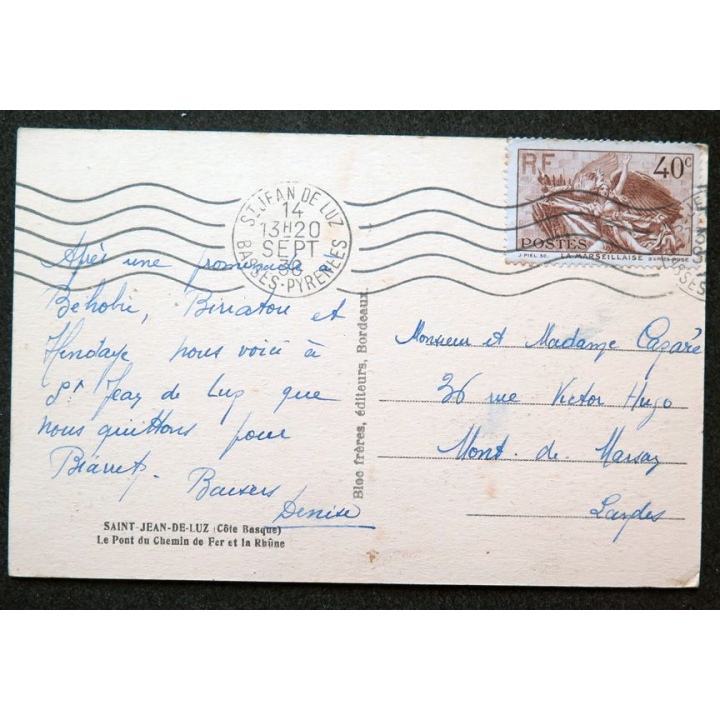 ST JEAN DE LUZ
14
13H20
SEPT
BASSES-PYRENEES
RF
40c
POSTES
J PIEL SC.
LA MARSEILLAISE
Après une promenade à
Béhobie, Biriatou et
Hendaye nous voici à
St Jean de Luz que
nous quittons pour
Biarritz. Baisers
Denise
SAINT-JEAN-DE-LUZ (Côte Basque)
Le Pont du Chemin de Fer et la Rhûne
Bloc frères, éditeurs, Bordeaux.
Monsieur et Madame
36 rue Victor Hugo
Mont. de Marsan
Landes